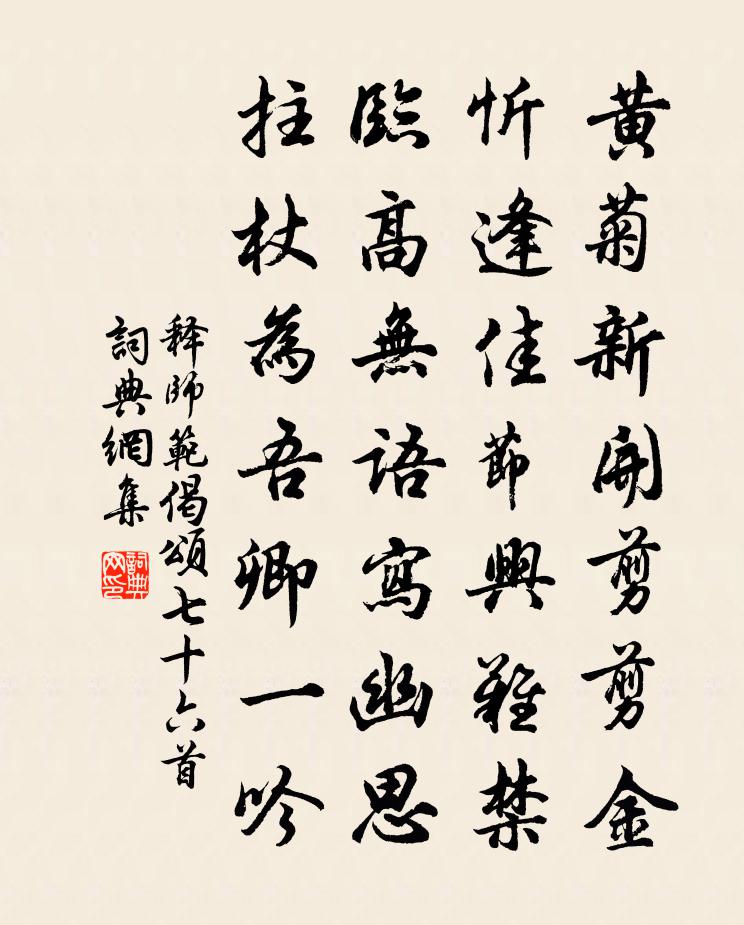 黄菊新開剪剪金
忻逢佳節興難禁
臨高無語寫幽思
拄杖為吾卿一吟
释師範偈頌七十六首
詞典網集
詞典网印